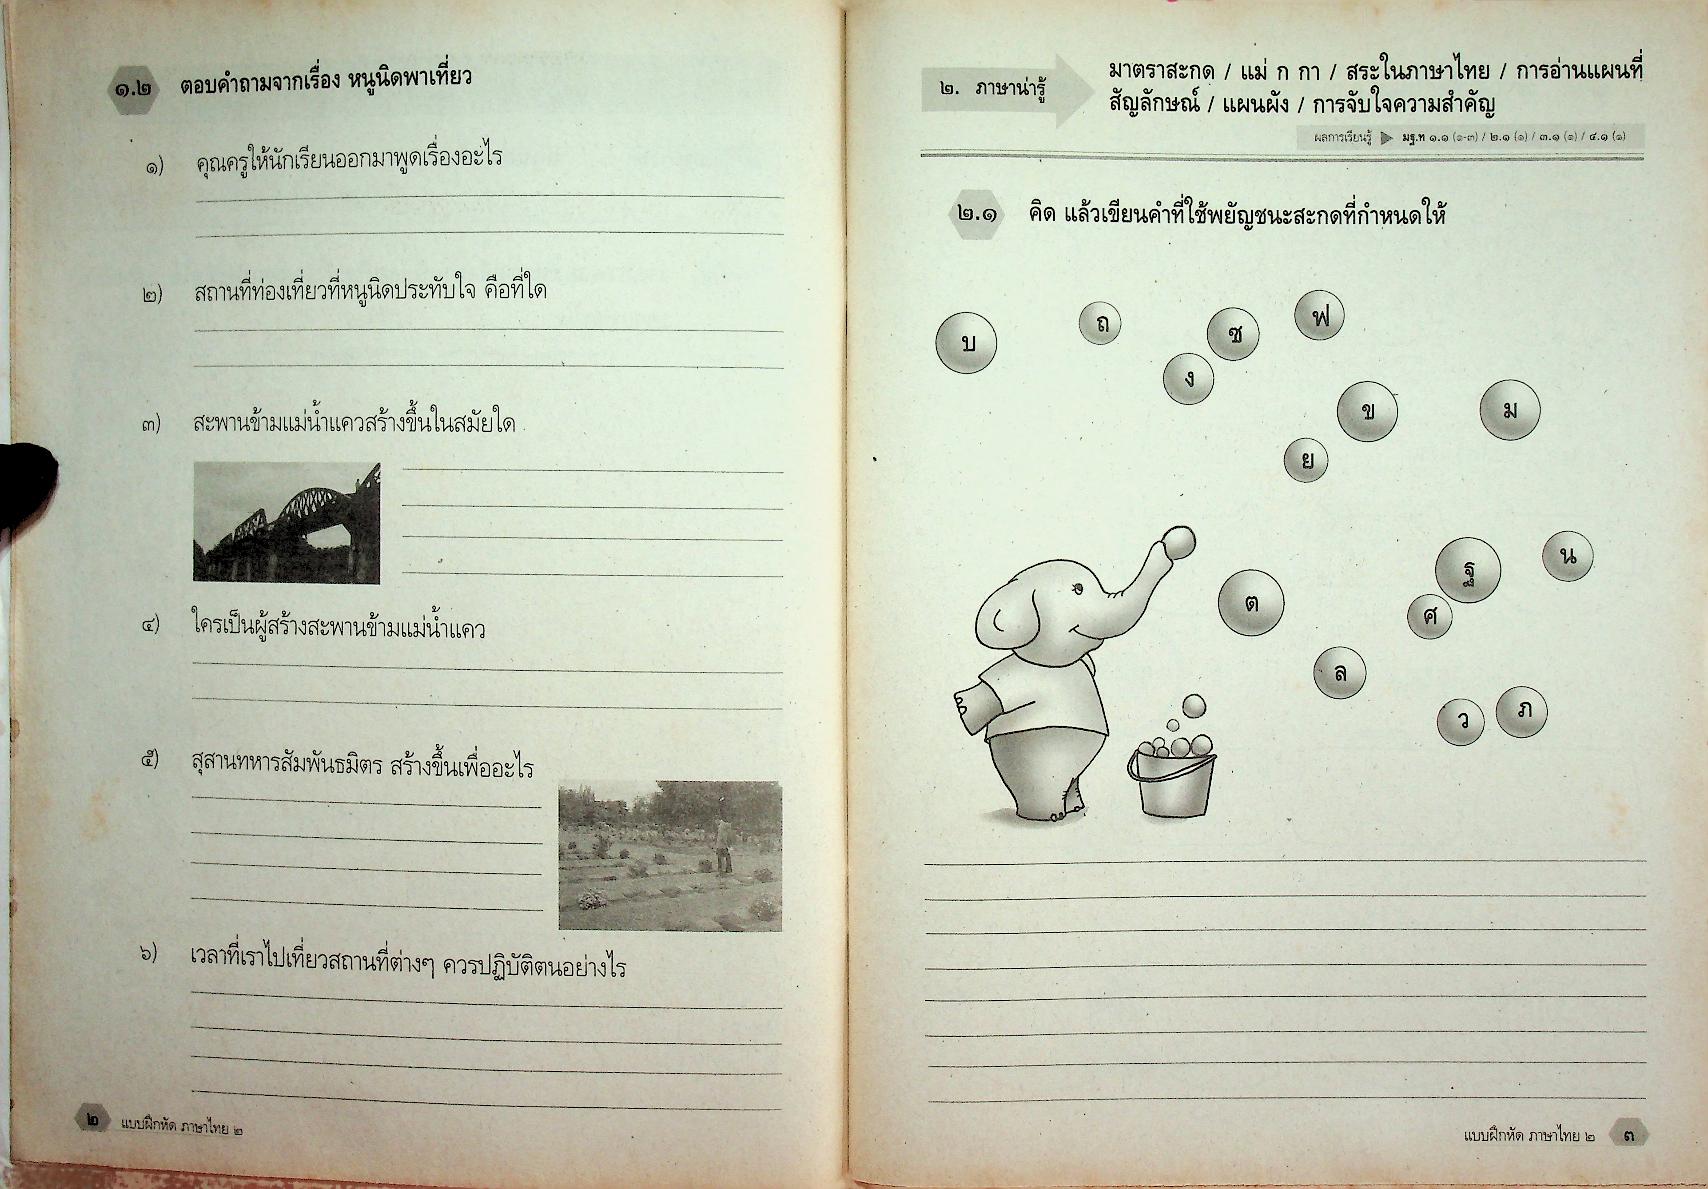 ๑.๒ ตอบคำถามจากเรื่อง หนูนิดพาเที่ยว
๑) คุณครูให้นักเรียนออกมาพูดเรื่องอะไร
๒) สถานที่ท่องเที่ยวที่หนูนิดประทับใจ คือที่ใด
๓) สะพานข้ามแม่น้ำแควสร้างขึ้นในสมัยใด
๔) ใครเป็นผู้สร้างสะพานข้ามแม่น้ำแคว
๕) สุสานทหารสัมพันธมิตร สร้างขึ้นเพื่ออะไร
๖) เวลาที่เราไปเที่ยวสถานที่ต่างๆ ควรปฏิบัติตนอย่างไร
๒ แบบฝึกหัด ภาษาไทย ๒
๒. ภาษาน่ารู้
มาตราสะกด / แม่ ก กา / สระในภาษาไทย / การอ่านแผนที่
สัญลักษณ์ / แผนผัง / การจับใจความสำคัญ
ผลการเรียนรู้ มฐ.ท ๑.๑ (๑-๓) / ๒.๑ (๑) / ๓.๑ (๑) / ๔.๑ (๑)
๒.๑ คิด แล้วเขียนคำที่ใช้พยัญชนะสะกดที่กำหนดให้
บ
ถ
ซ
ฟ
ง
ข
ม
ย
ต
ฐ
น
ศ
ล
ว
ภ
แบบฝึกหัด ภาษาไทย ๒ ๓